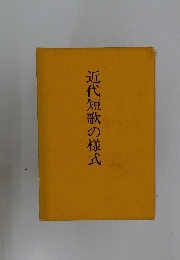 近代短歌の様式